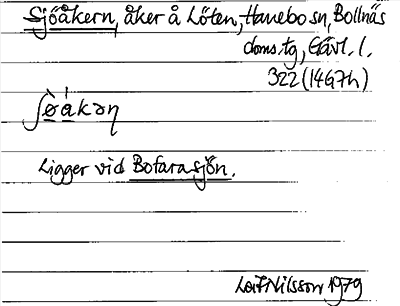 Sjöåkern, åker å Löten, Hanebo sn, Bollnäs
doms. tg, Gävl. l.
322 (14G7h)
ʃø̀åkəɳ
Ligger vid Bofarasjön.
Leif Nilsson 1979